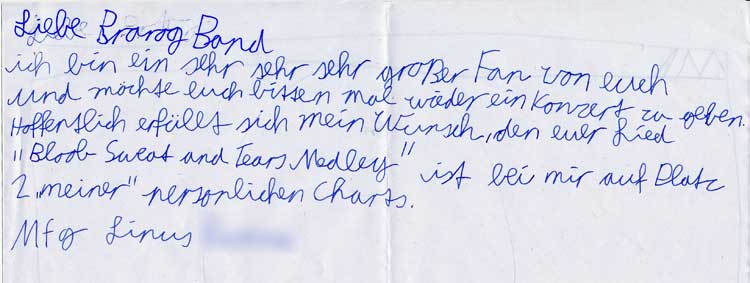 Liebe Brarog Band
ich bin ein sehr sehr sehr großer Fan von euch
und möchte euch bitten mal wieder ein Konzert zu geben.
Hoffentlich erfüllt sich mein Wunsch, den euer Lied
"Bloob Sweat and Tears Medley" ist bei mir auf Platz
2 „meiner" persönlichen Charts.
Mfg Linus